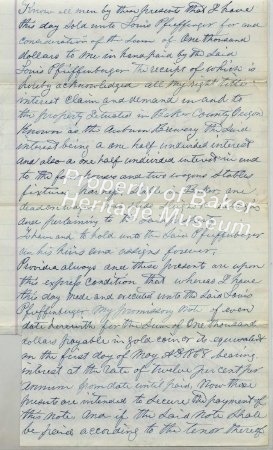 Know all men by these present that I have
this day sold unto Louis Pfeiffenbrger for and
consideration of the Sum of One thousand
dollars to me in hand paid by the Said
Louis Pfeiffenbrger The receipt of which is
hereby acknowledged all My right title
interest claim and demand in and to
the property situated in Baker County Oregon
Known as the Auburn Brewery the Said
interest being a one half undivided interest
and also a one half undivided interest in and
to the four horses and two wagons Stables
fixtures
pertaining to
To have and to hold unto the Said Pfeiffenbrger
his heirs and assigns forever.
Provided always and these present are upon
this express Condition that whereas I have
this day Made and executed unto the Said Louis
Pfeiffenbrger My promissory Note of even
date herewith for the Sum of One thousand
dollars payable in gold coin or its equivalent
on the first day of May AD 1868. bearing
interest at the rate of twelve per cent per
annum from date until paid. Now these
presents are intended to Secure the payment of
this Note And if the Said Note Shall
be paid according to the tenor thereof
Property of Baker
Heritage Museum